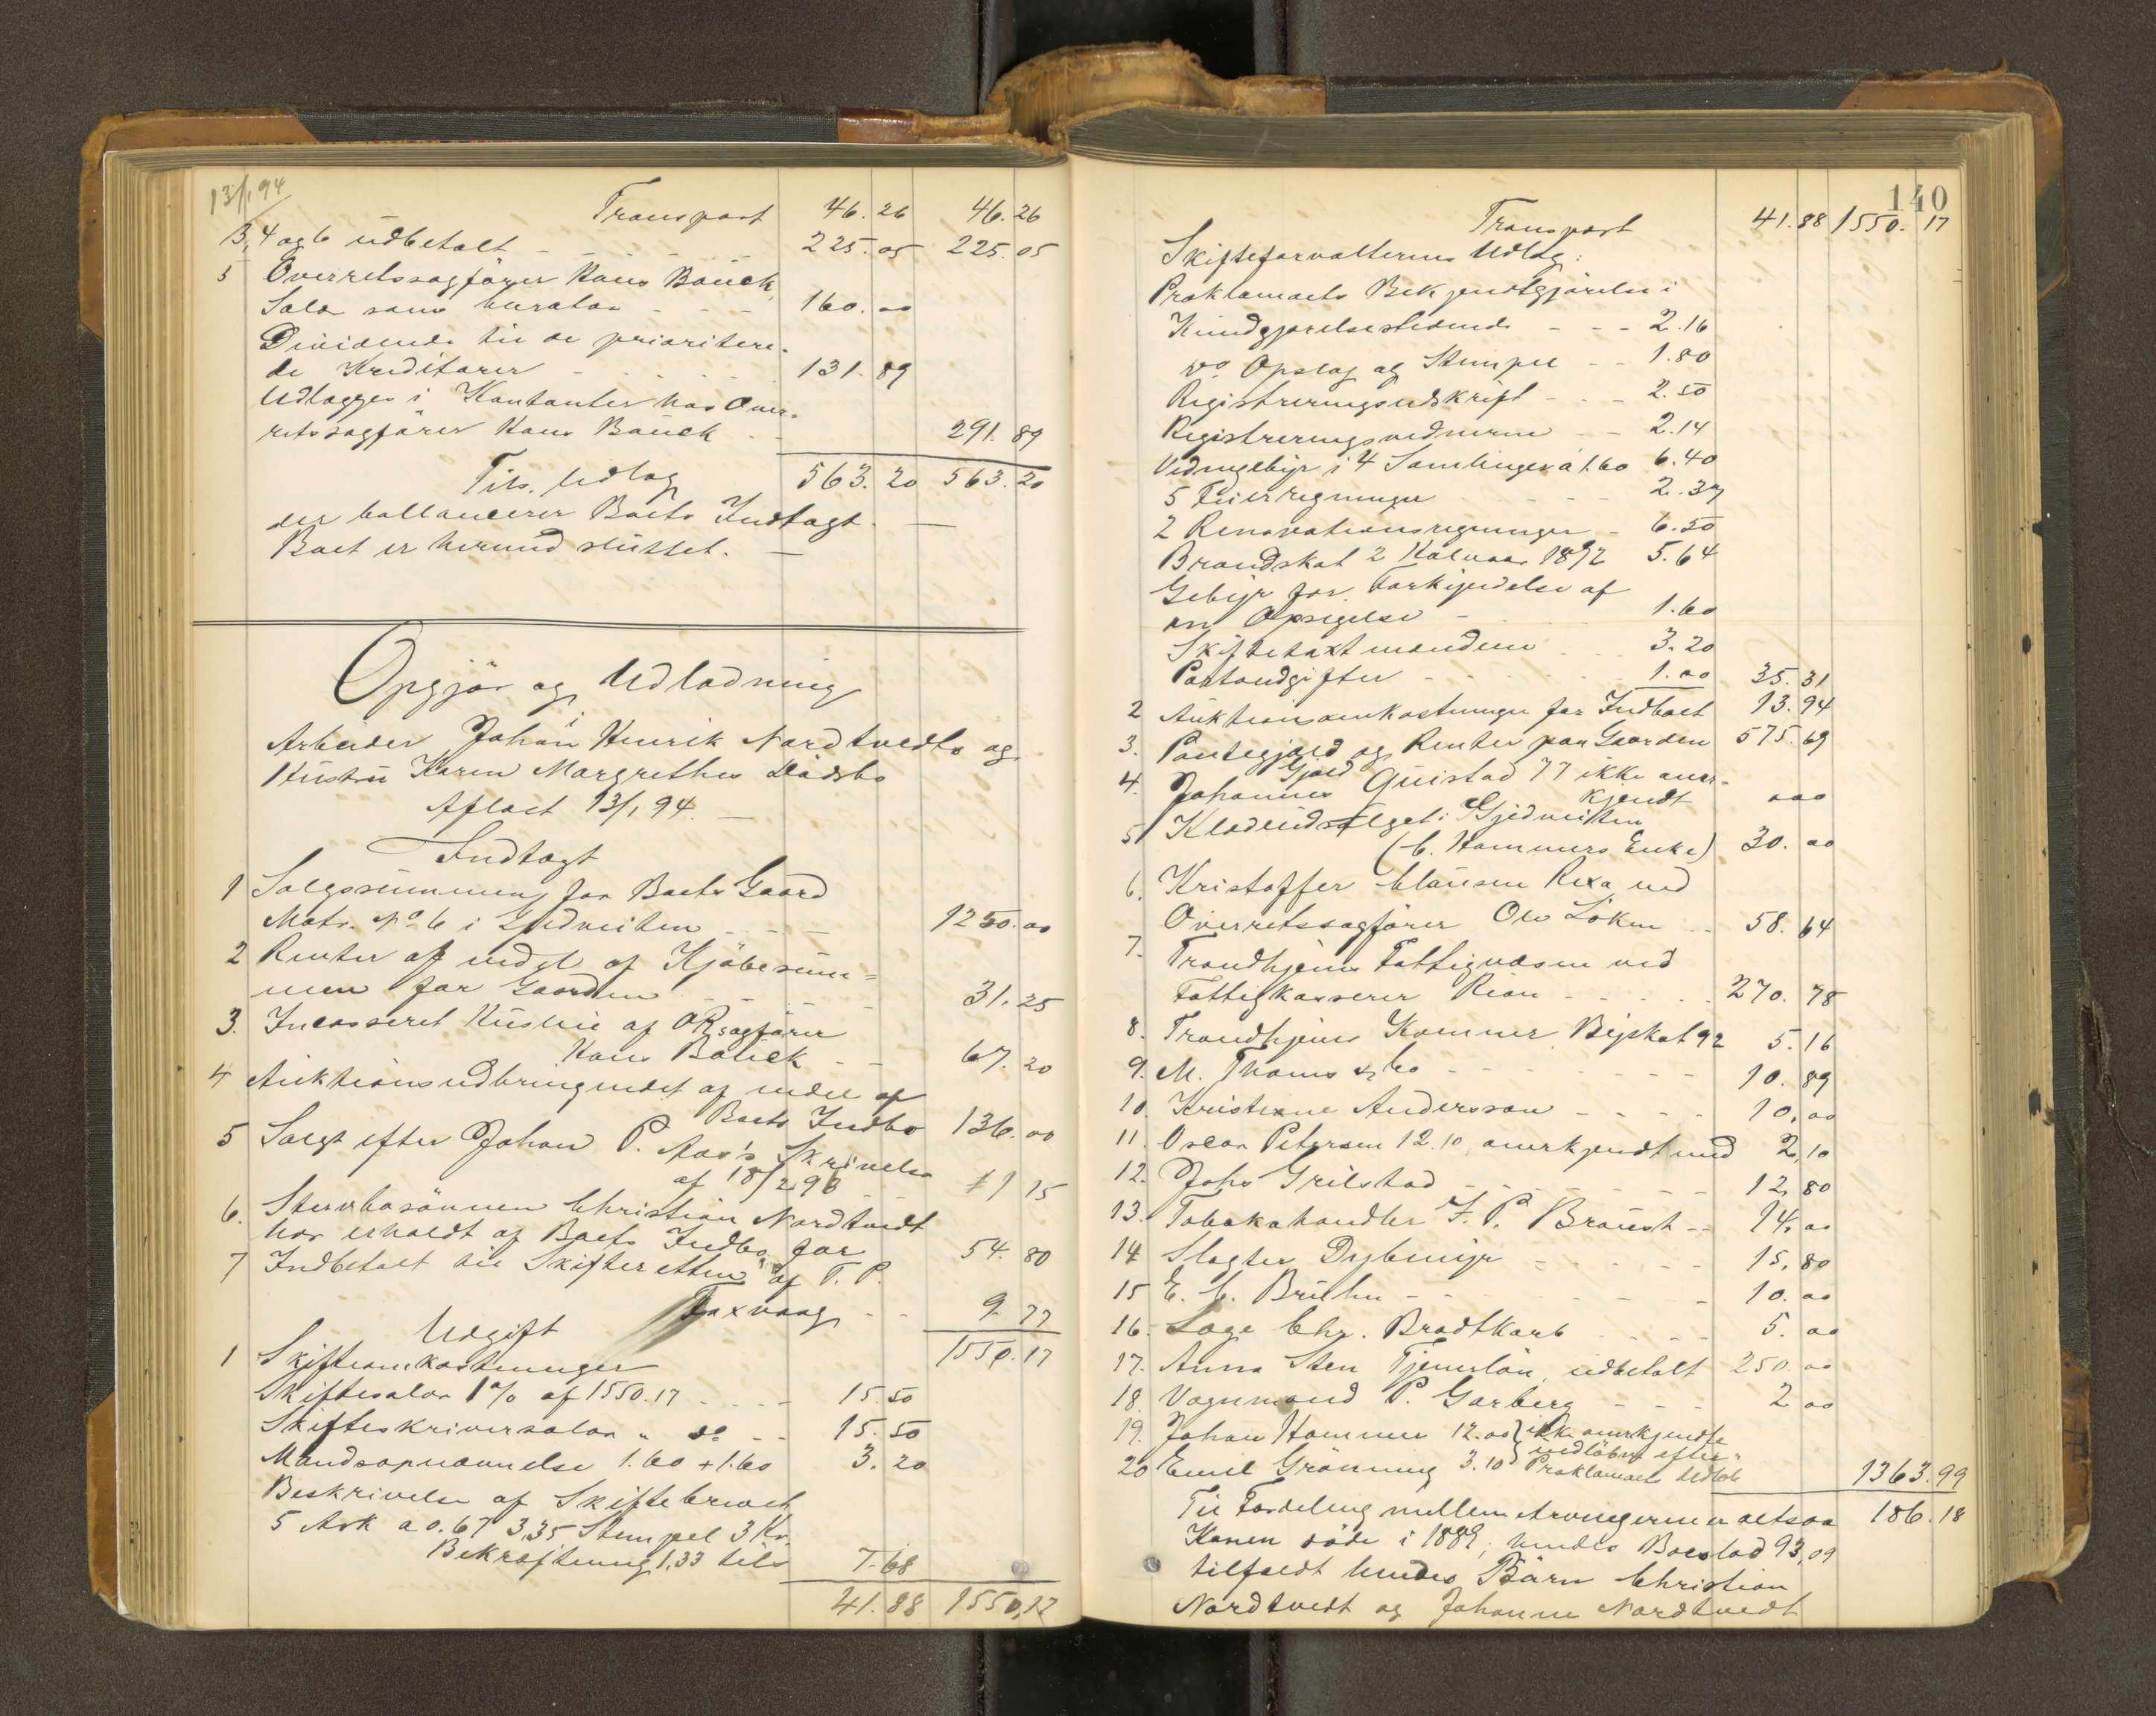 13/1 94
Transport 46.26 46.26
3, 4 og 6 udbetalt 225.05 225.05
5 Overretssagfører Hans Bauck,
Salær som kurator 160.00
Dividende til de prioritere-
de Kreditorer 131.89
Udlægges i Kontanter hos Over-
retssagfører Hans Bauck 291.89
Tils. Udlæg 563.20 563.20
der ballancerer Boets Indtægt.
Boet er hermed sluttet.
Opgjør og Udlodning
i
Arbeider Johan Henrik Nordtvedts og
Hustru Karen Margrethes Dødsbo
Afloet 13/1 94.
Indtægt
1 Salgssummen for Boets Gaard
Matr. No 6 i Gjedveiten 1250.00
2 Renter af endel af Kjøbesum-
men for Gaarden 31.25
3. Incasseret Husleie af ORsagfører
Hans Bauck 67.20
4 Auktionsudbringendet af endel af
Boets Indbo 136.00
5 Solgt efter Johan P. Aas's Skrivelse
af 18/2 93 #1 15
6. Stervbosønnen Christian Nordtvedt
har erholdt af Boets Indbo for 54.80
7 Indbetalt til Skifteretten af T. P.
Faxvaag 9.77
1550.17
Udgift
1 Skifteomkostninger
Skiftesalær 1% af 1550.17 15.50
Skifteskriversalær " do 15.50
Mandsopnævnelse 1.60 + 1.60 3.20
Beskrivelse af Skiftebrevet
5 Ark a 0.67 3.35 Stempel 3 Kr.
Bekræftning 1,33 tils 7.68
41.88 1550,17
140
Transport 41.88 1550.17
Skifteforvalterens Udlæg:
Proklamaets Bekjendtgjørelse i
Kundgjørelsestidende 2.16
do Opslag og Stempel 1.80
Registreringsudskrift 2.50
Registreringsvidnerne 2.14
Vidnegebyr i 4 Samlinger á 1.60 6.40
5 Feierregninger 2.37
2 Renovationsregninger 6.50
Brandskat 2 Halvaar 1892 5.64
Gebyr for Forkyndelse af
en Opsigelse 1.60
Skiftetaxtmændene 3.20
Portoudgifter 1.00 35.31
2 Auktionsomkostninger for Indboet 13.94
3. Pantegjæld og Renter paa Gaarden 575.69
4. Johannes Gjæld Quistad 77 ikke aner-
kjendt ooo
5 Klædeudsalget i Gjedveiten
(C. Hammers Enke) 30.00
6. Kristoffer Clausen Rexa ved
Overretssagfører Ole Løken 58.64
7. Trondhjems Fattigvæsen ved
Fattigkasserer Rian 270.78
8. Trondhjems Kæmner, Byskat 92 5.16
9. M. Thams & Co 10.89
10. Kristiane Andersson 10,00
11. Oscar Petersen 12.10, anerkjendt med 2,10
12. Johs Grilstad 12,80
13. Tobakshandler F. P. Braust 14,00
14 Slagter Dybmyr 15,80
15 E. C. Bruhn 10.00
16. Læge Chr. Brodtkorb 5.00
17. Anna Sten Tjenerløn, udbetalt 250.00
18. Vognmand P. Garberg 2 00
19. Johan Hammer 12.00 } ikke anerkjendte
indløbne efter
20 Emil Grønning 3.10 } Proklamaets Udløb 1363.99
Til Fordeling mellem Arvingerne er altsaa 186.18
Konen døde i 1889, hendes Boeslod 93,09
tilfaldt hendes Børn Christian
Nordtvedt og Johanne Nordtvedt